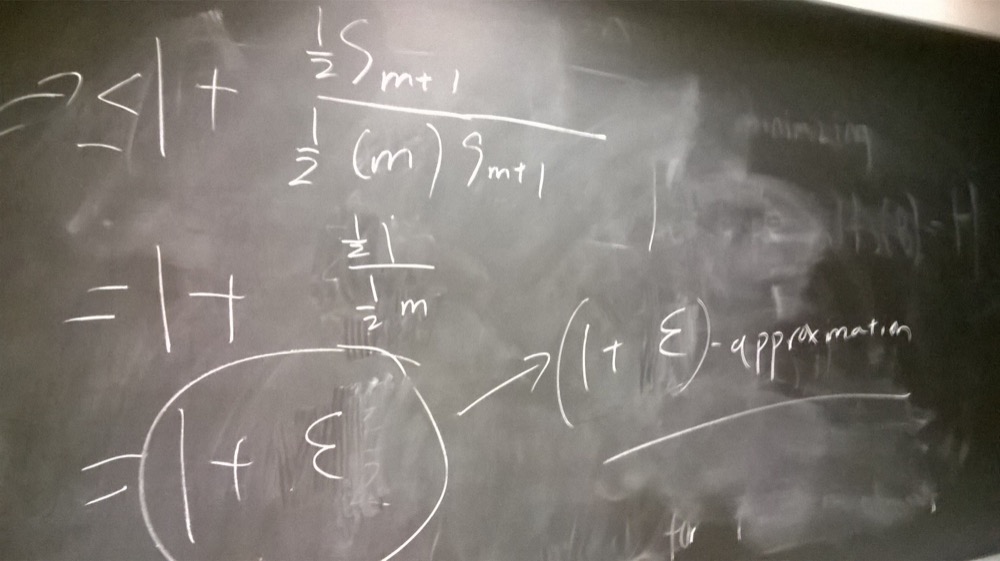 ⇒ ≤ 1 + ½ S_{m+1} / ½ (m) S_{m+1}
= 1 + ½ 1 / ½ m
= 1 + ε → (1 + ε)-approximation
minimizing
for